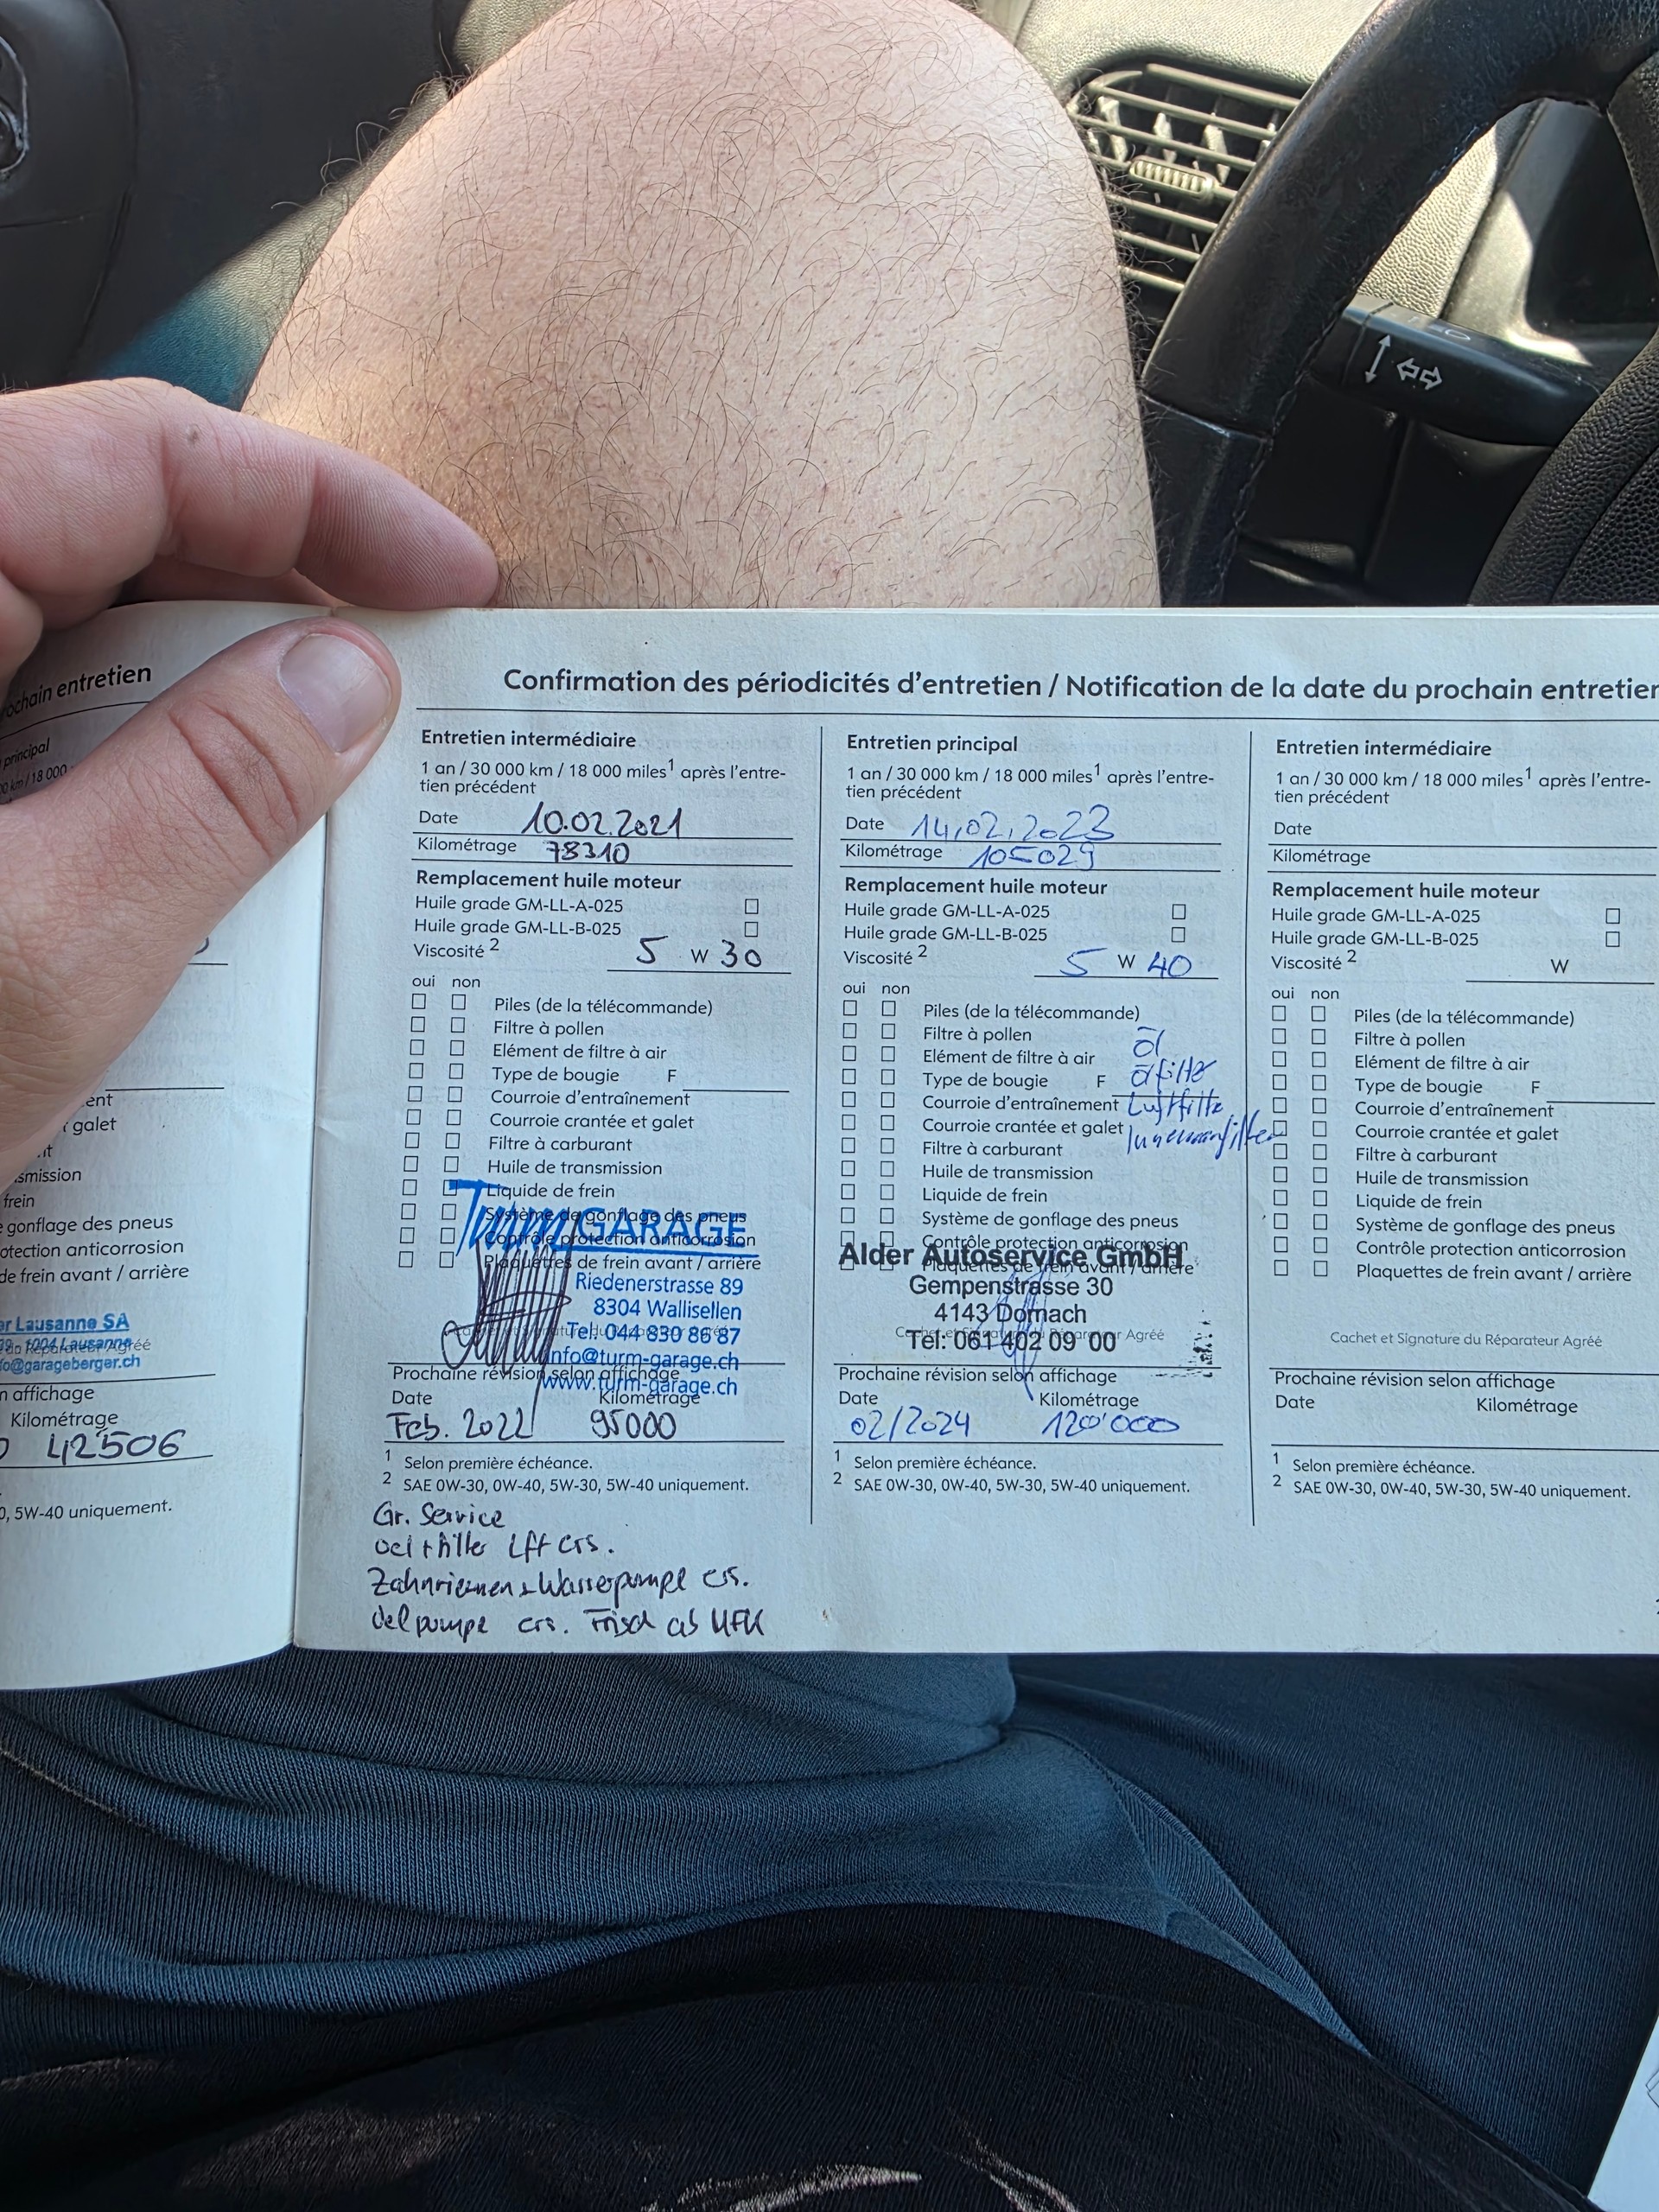 ochain entretien
principal
km / 18 000
ent
galet
smission
frein
gonflage des pneus
otection anticorrosion
de frein avant / arrière
er Lausanne SA
1004 Lausanne
fo@garageberger.ch
n affichage
Kilométrage
42'506
5W-40 uniquement.
Confirmation des périodicités d'entretien / Notification de la date du prochain entretien
Entretien intermédiaire
1 an / 30 000 km / 18 000 miles¹ après l'entre-
tien précédent
Date 10.02.2021
Kilométrage 78310
Remplacement huile moteur
Huile grade GM-LL-A-025
Huile grade GM-LL-B-025
Viscosité ² 5 W 30
oui non
Piles (de la télécommande)
Filtre à pollen
Elément de filtre à air
Type de bougie F
Courroie d'entraînement
Courroie crantée et galet
Filtre à carburant
Huile de transmission
Liquide de frein
Système de gonflage des pneus
Contrôle protection anticorrosion
Plaquettes de frein avant / arrière
Turm GARAGE
Riedenerstrasse 89
8304 Wallisellen
Tel: 044 830 86 87
info@turm-garage.ch
www.turm-garage.ch
Prochaine révision selon affichage
Date Kilométrage
Feb. 2022 95000
1 Selon première échéance.
2 SAE 0W-30, 0W-40, 5W-30, 5W-40 uniquement.
Gr. Service
oel + filter Lft ers.
Zahnriemen + Wasserpumpe ers.
Oelpumpe ers. Frisch ab MFK
Entretien principal
1 an / 30 000 km / 18 000 miles¹ après l'entre-
tien précédent
Date 14.02.2023
Kilométrage 105029
Remplacement huile moteur
Huile grade GM-LL-A-025
Huile grade GM-LL-B-025
Viscosité ² 5 W 40
oui non
Piles (de la télécommande)
Filtre à pollen
Elément de filtre à air
Type de bougie F
Courroie d'entraînement
Courroie crantée et galet
Filtre à carburant
Huile de transmission
Liquide de frein
Système de gonflage des pneus
Contrôle protection anticorrosion
Plaquettes de frein avant / arrière
Öl
Ölfilter
Luftfilter
Innenraumfilter
Alder Autoservice GmbH
Gempenstrasse 30
4143 Dornach
Tel: 061 402 09 00
Cachet et Signature du Réparateur Agréé
Prochaine révision selon affichage
Date Kilométrage
02/2024 120'000
1 Selon première échéance.
2 SAE 0W-30, 0W-40, 5W-30, 5W-40 uniquement.
Entretien intermédiaire
1 an / 30 000 km / 18 000 miles¹ après l'entre-
tien précédent
Date
Kilométrage
Remplacement huile moteur
Huile grade GM-LL-A-025
Huile grade GM-LL-B-025
Viscosité ² W
oui non
Piles (de la télécommande)
Filtre à pollen
Elément de filtre à air
Type de bougie F
Courroie d'entraînement
Courroie crantée et galet
Filtre à carburant
Huile de transmission
Liquide de frein
Système de gonflage des pneus
Contrôle protection anticorrosion
Plaquettes de frein avant / arrière
Cachet et Signature du Réparateur Agréé
Prochaine révision selon affichage
Date Kilométrage
1 Selon première échéance.
2 SAE 0W-30, 0W-40, 5W-30, 5W-40 uniquement.